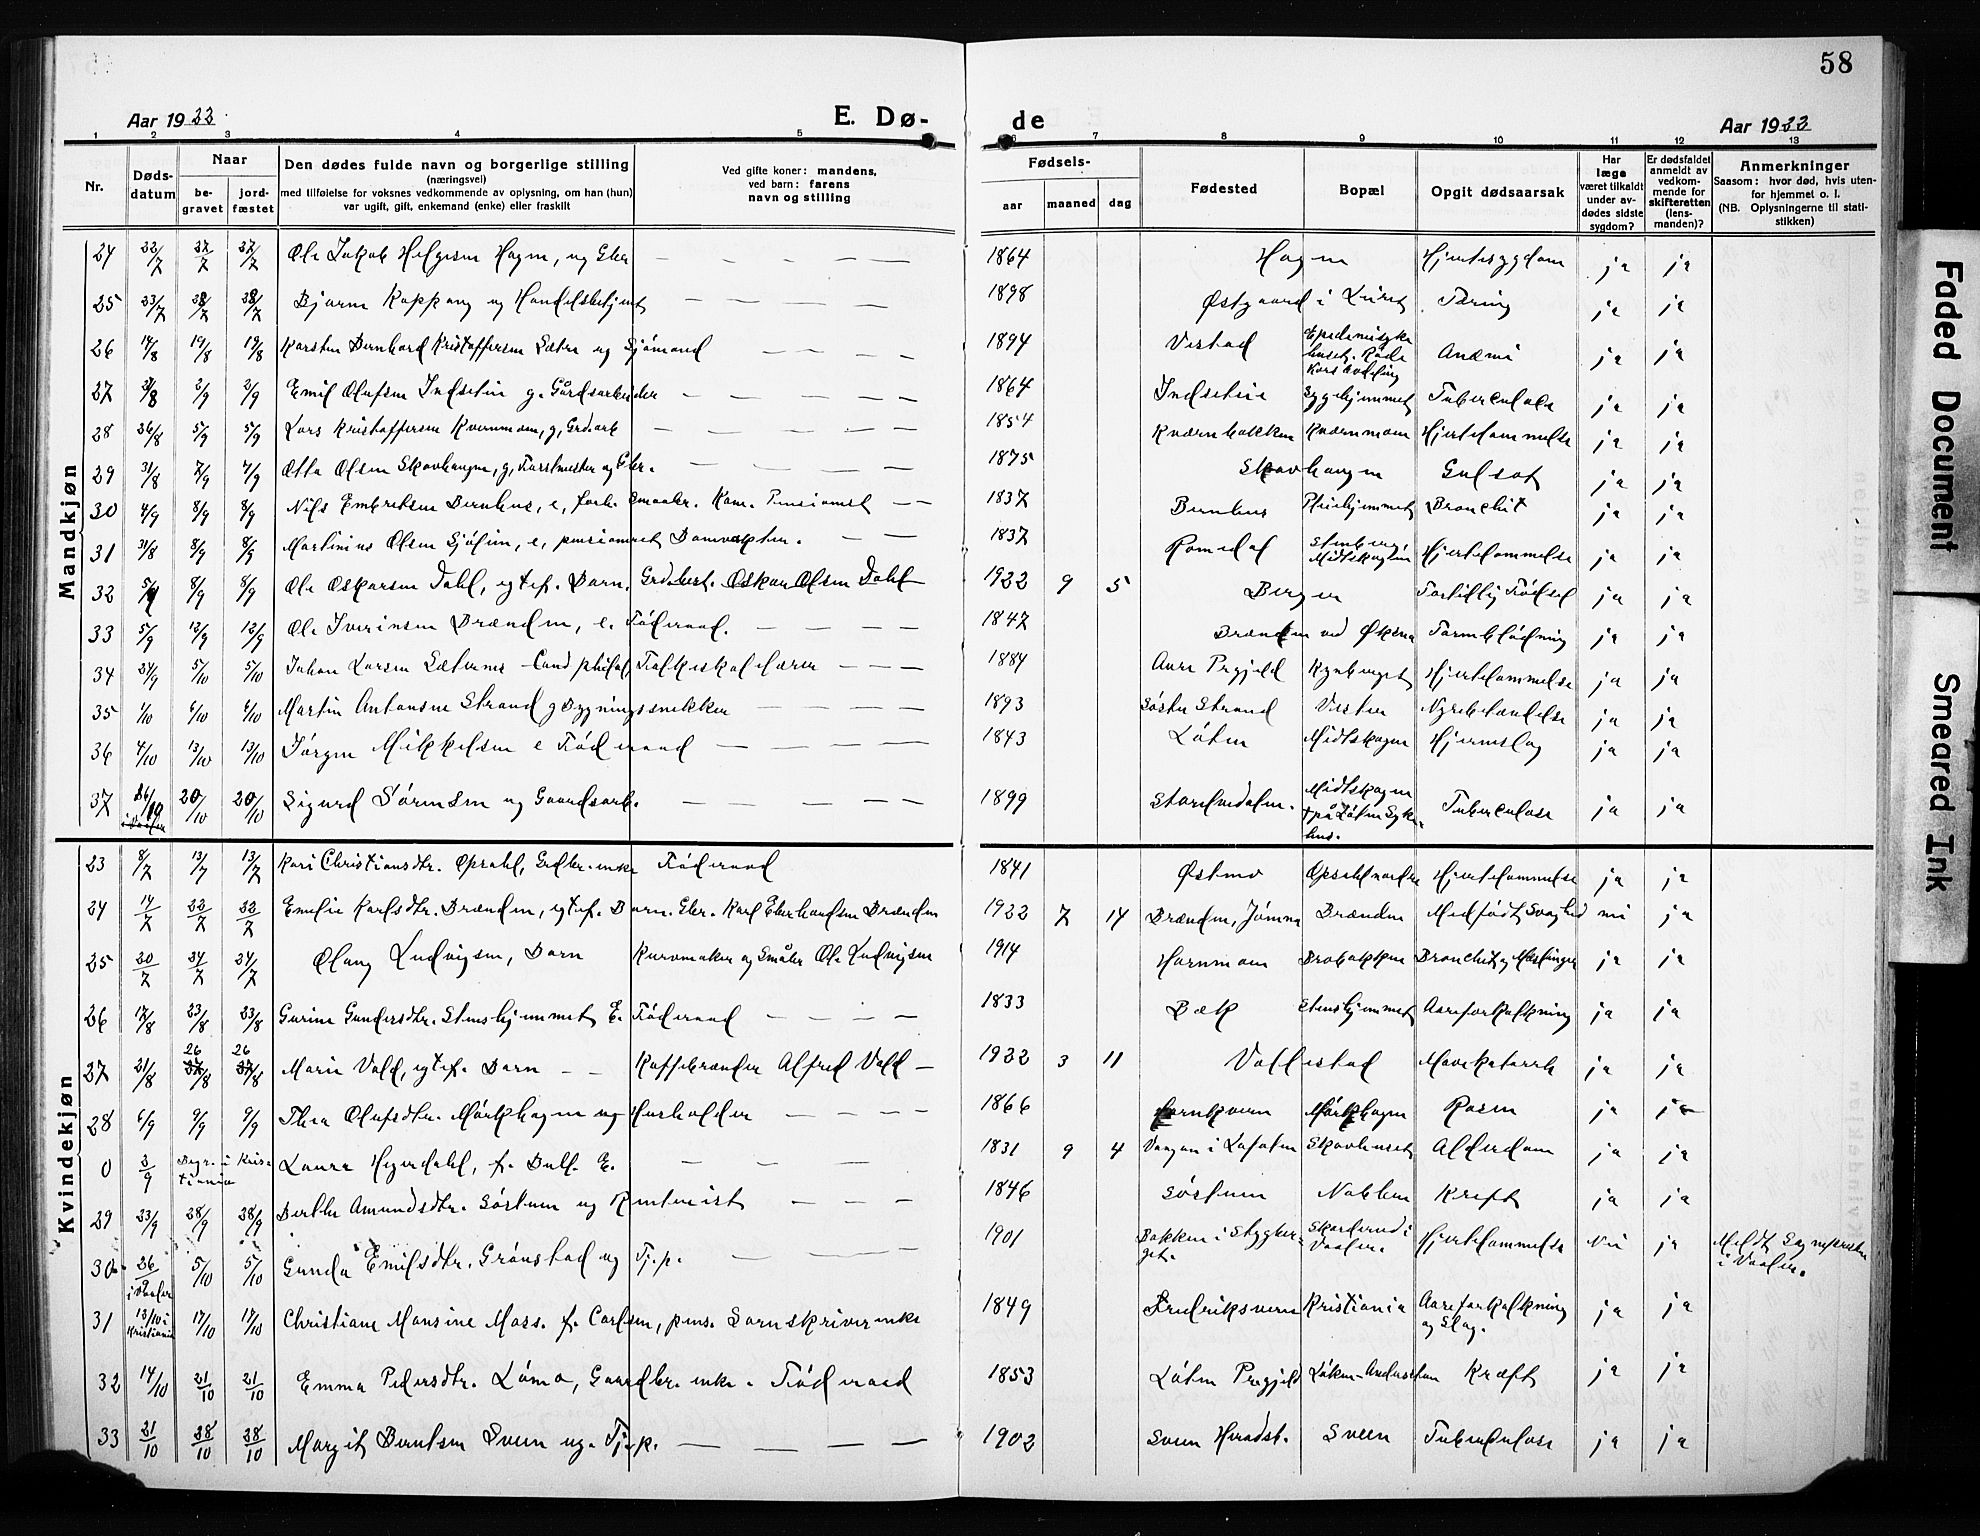 58
Aar 1922.
E. Dø-
de
Aar 1922
1 2 3 4 5 6 7 8 9 10 11 12 13
Nr.
Dødsdatum
Naar
begravet
jordfæstet
Den dødes fulde navn og borgerlige stilling
(næringsvei)
med tilføielse for voksnes vedkommende av oplysning, om han (hun)
var ugift, gift, enkemand (enke) eller fraskilt
Ved gifte koner: mandens,
ved barn: farens
navn og stilling
Fødsels-
aar maaned dag
Fødested
Bopæl
Opgit dødsaarsak
Har
læge
været tilkaldt
under avdødes sidste
sygdom?
Er dødsfaldet
anmeldt av
vedkommende for
skifteretten
(lensmanden)?
Anmerkninger
Saasom: hvor død, hvis utenfor hjemmet o. l.
(NB. Oplysningerne til statistikken)
Mandkjøn
24 22/7 27/7 27/7 Ole Jakob Helgesen Hagen, ug Gbr — — — — — 1864 Hagen Hjertesygdom ja ja
25 23/7 28/7 28/7 Bjarne Koppang ug Handelsbetjent — — — — 1898 Østgaard i Luret Tæring ja ja
26 14/8 19/8 19/8 Karsten Bernhard Kristoffersen Sætre ug Sjömand — — — — 1894 Vestad Epidemisyke huset. Röde Kors Avdeling Anæmi ja ja
27 27/8 2/9 2/9 Emil Olufsen Indsetvie g. Gårdsarbeider — — — — 1864 Indsetvie Sygehjemmet Tuberculose ja ja
28 26/8 5/9 5/9 Lars Kristoffersen Kvernmoen, g, Grd.arb — — — — 1854 Kværnbakken Kværnmoen Hjertelammelse ja ja
29 31/8 7/9 7/9 Otto Olsen Skovhaugen, g, Forstmester og Gbr. — — — — 1875 Skovhaugen Gulsot ja ja
30 4/9 8/9 8/9 Nils Embretsen Bernhus, e, forh. Smaabr. Kom. Pensionist — — 1837 Bernhus Pleiehjemmet Bronchit ja ja
31 31/8 8/9 8/9 Martinius Olsen Sjölien, e, pensioneret Banevokter. — — 1837 Romedal Stenberg, Midtskogen Hjertelammelse ja ja
32 5/9 8/9 8/9 Ole Oskarsen Dahl, egtef. Barn, Grdbest. Oskar Olsen Dahl 1922 9 5 Berger Fortidlig Födsel ja ja
33 5/9 12/9 12/9 Ole Iverinsen Brænden, e. Föderaad. — — — — 1847 Brænden ved Øksna Tarmblödning ja ja
34 24/9 5/10 5/10 Johan Larsen Sæternes Cand philol, Folkeskolelærer — — — 1884 Aure Prgjeld Kynberget Hjertelammelse ja ja
35 1/10 6/10 6/10 Martin Antonsen Strand g Bygningssnekker — — — — 1893 Söstu Strand Vestu Nyrebetændelse ja ja
36 4/10 13/10 13/10 Jörgen Mikkelsen e Föderaad — — — — 1843 Löten Midtskogen Hjerneslag ja ja
37 16/10 20/10 20/10 Sigurd Sörensen ug Gaardsarb. — — — — — 1899 Storelvedalen. Midtskogen † på Löten Sykehus. Tuberculose ja ja
Kvindekjøn
23 8/7 13/7 13/7 Kari Christiansdtr. Opsahl, Grdbr. enke Föderaad 1841 Østmo Opsahl nordre Hjertelammelse ja ja
24 14/7 22/7 22/7 Emilie Karlsdtr. Brænden, egtef. Barn. Gbr. Karl Eberhardsen Brænden 1922 7 14 Brænden, Jömna Brænden Medfödt Svaghed nei ja
25 20/7 24/7 24/7 Olaug Ludvigsen, Barn Kurvmaker og Småbr Ole Ludvigsen 1914 Hornmoen Brobakken Bronchit og Meslinger ja ja
26 17/8 23/8 23/8 Gurine Gundersdtr. Stenshjemmet E. Föderaad — — — — 1833 Bæk Stenshjemmet Aareforkalkning ja ja
27 21/8 26/8 26/8 Marie Vold, egtef. Barn — — Kaffebrænder Alfred Vold — 1922 3 11 Vollestad Mavekatarrh ja ja
28 6/9 9/9 9/9 Thea Olufsdtr. Mörkhagen ug Husholder — — — — 1866 Hornkvern Mörkhagen Rosen ja ja
0 3/9 Begr. i Kristiania Laura Heyerdahl, f. Bull. E. — — — — 1831 9 4 Vaagan i Lofoten Skovhuset Alderdom ja ja
29 23/9 28/9 28/9 Berthe Amundsdtr. Söstuen ug Rentenist — — — 1846 Söstuen Nabben Kreft ja ja
30 26/9 i Vaaler 5/10 5/10 Gunda Emilsdtr. Grönstad ug Tj.p. — — — 1901 Bakken i Stygberget. Skarderud i Vaaler. Hjertelammelse Nei ja Meldt Sognepresten i Vaaler.
31 13/10 i Kristiania 17/10 17/10 Christiane Monsine Moss. f. Carlsen, pens. Sorenskriverenke 1849 Fredriksvern Kristiania Aareforkalkning og Slag. ja ja
32 14/10 21/10 21/10 Emma Pedersdtr. Lömo, Gaardbr. enke. Föderaad 1853 Löten Prgjeld Löken-Anderstuen Kræft ja ja
33 21/10 28/10 28/10 Margit Berntsen Sveen ug. Tj.p. — — — — 1902 Sveen Heradsb. Sveen Tuberkulose ja ja
Faded Document
Smeared Ink